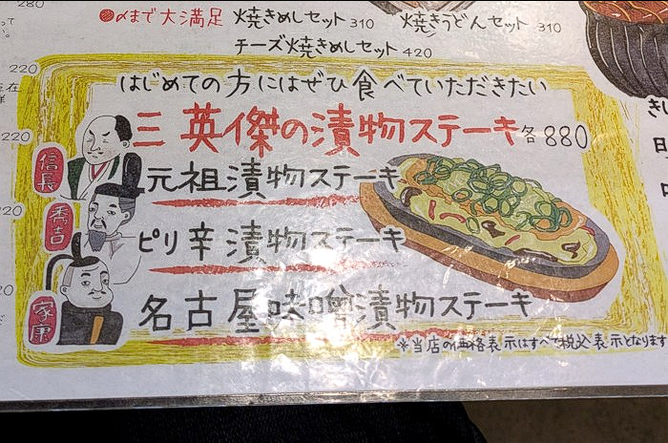 280
●〆まで大満足
焼きめしセット 310
焼きうどんセット 310
チーズ焼きめしセット 420
220
220
はじめての方にはぜひ食べていただきたい
三英傑の漬物ステーキ 各880
信長
元祖漬物ステーキ
秀吉
ピリ辛漬物ステーキ
家康
名古屋味噌漬物ステーキ
※当店の価格表示はすべて税込表示となります